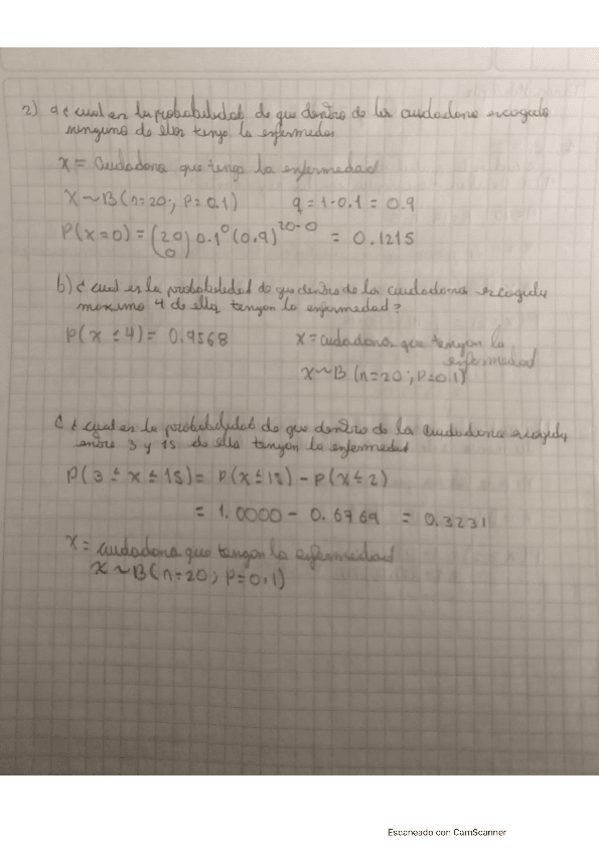 2) a ¿ cual es la probabilidad de que dentro de los ciudadano escogido
ninguno de ellos tenga la enfermedad
x = ciudadano que tenga la enfermedad
X ~ B(n=20; p=0.1) q = 1-0.1 = 0.9
P(x=0) = (20 0) 0.1^0 (0.9)^20-0 = 0.1215
b) ¿ cual es la probabilidad de que dentro de los ciudadanos escogidos
maximo 4 de ellos tengan la enfermedad?
P(x ≤ 4) = 0.9568 x = ciudadano que tengan la
enfermedad
x ~ B (n=20; p=0.1)
c ¿ cual es la probabilidad de que dentro de la ciudadana escogida
entre 3 y 15 de ella tengan la enfermedad
P(3 ≤ x ≤ 15) = P(x ≤ 15) - P(x ≤ 2)
= 1.0000 - 0.6769 = 0.3231
x = ciudadana que tengan la enfermedad
x ~ B(n=20; p=0.1)
Escaneado con CamScanner